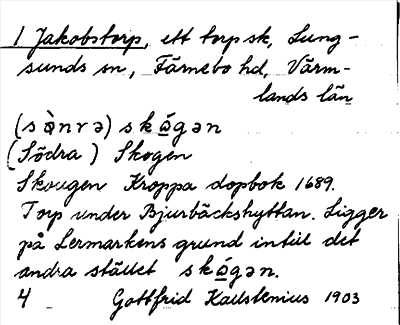 1 Jakobstorp, ett torpsk, Lung-
sunds sn, Färnebo hd, Värm-
lands län
(sə̀nrə) skǿgən
(Södra) Skogen
Skougen Kroppa dopbok 1689.
Torp under Bjurbäckshyttan. Ligger
på Lermarkens grund intill det
andra stället skǿgən.
4 Gottfrid Kallstenius 1903